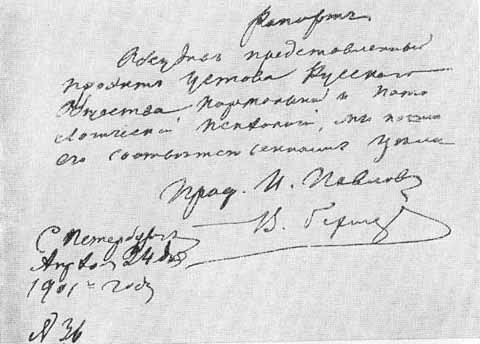 Рапортъ.
Обсудивъ представленный
проэктъ Устава Русского
Общества Нормальной и Пато
логической Психологіи, мы нашли
его соответствующимъ
Проф. И. Павловъ
В.
С Петербургъ
Апрѣля 24 дня
1901 г году
N 36